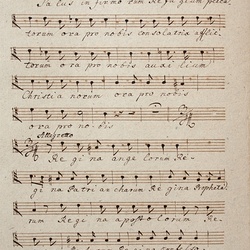 Sa lus in firmo rum Re fu gium pecca
torum ora pro nobis Consolatrix afflic
torum ora pro nobis auxi lium
Christia norum ora pro nobis
ora pro no-bis
Allegretto
Re gi na ange lorum Re-
gi na Patri ar charum Re gina Propheta
rum Regi na aposto lorum Re-